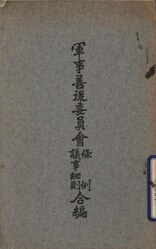 軍事善後委員會條例議事細則合編